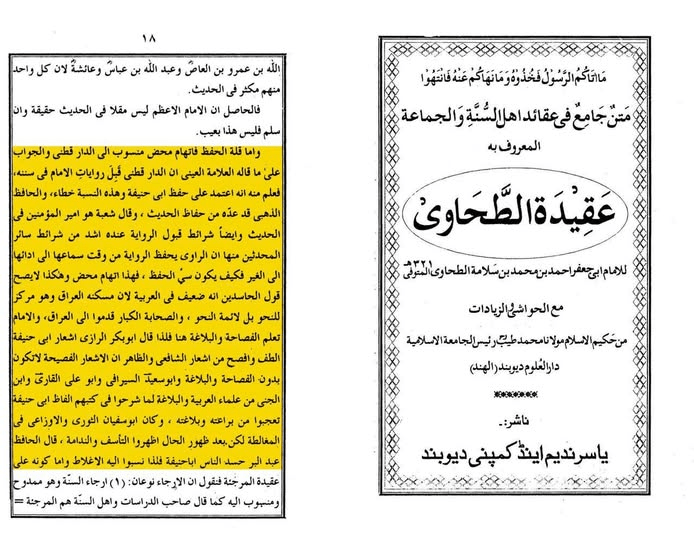 ١٨
الله بن عمرو بن العاصؓ وعبد الله بن عباسؓ وعائشةؓ لان كل واحد
منهم مكثر فى الحديث.
فالحاصل ان الامام الاعظم ليس مقلا فى الحديث حقيقة وان
سلم فليس هذا بعيب.
واما قلة الحفظ فاتهام محض منسوب الى الدار قطنى والجواب
علىٰ ما قاله العلامة العينى ان الدار قطنى قَبِلَ رواياتِ الامام فى سننه،
فعلم منه انه اعتمد على حفظ ابى حنيفة وهذه النسبة خطاء، والحافظ
الذهبى قد عدّه من حفاظ الحديث ، وقال شعبة هو امير المؤمنين فى
الحديث وايضاً شرائط قبول الرواية عنده اشد من شرائط سائر
المحدثين منها ان الراوى يحفظ الرواية من وقت سماعها الى ادائها
الى الغير فكيف يكون سيَّ الحفظ ، فهذا اتهام محض وهٰكذا لايصح
قول الحاسدين انه ضعيف فى العربية لان مسكنه العراق وهو مركز
للنحو بل لائمة النحو ، والصحابة الكبار قدموا الى العراق، والامام
تعلم الفصاحة والبلاغة هنا فلذا قال ابوبكر الرازى اشعار ابى حنيفة
الطف وافصح من اشعار الشافعى والظاهر ان الاشعار الفصيحة لاتكون
بدون الفصاحة والبلاغة وابوسعيد السيرافى وابو على القارى وابن
الجنى من علماء العربية والبلاغة لما شرحوا فى كتبهم الفاظ ابى حنيفة
تعجبوا من براعته وبلاغته ، وكان ابوسفيان الثورى والاوزاعى فى
المغالطة لكن بعد ظهور الحال اظهروا التأسف والندامة ، قال الحافظ
عبد البر حسد الناس اباحنيفة فلذا نسبوا اليه الاغلاط واما كونه على
عقيدة المرجئة فنقول ان الارجاء نوعان: (١) ارجاء السنّة وهو ممدوح
ومنسوب اليه كما قال صاحب الدراسات واهل السنّة هم المرجئة =
مَا اٰتَاكُمُ الرَّسُوْلُ فَخُذُوْهُ وَمَا نَهَاكُمْ عَنْهُ فَانْتَهُوْا
مَتنٌ جَامِعٌ فى عقائد اهل السُّنَّةِ وَالجماعة
المعروف به
عَقِيْدَة الطَّحَاوِىْ
للامام ابى جعفر احمد بن محمد بن سَلامة الطحاوى المتوفى ٣٢١ھ
مع الحواشى والزيادات
من حَكيم الاسلام مولانا محمد طيب رئيس الجامعة الاسلامية
دار العُلوم ديوبند (الهند)
ناشر:۔
ياسر نديم اينڈ كمپنى ديوبند